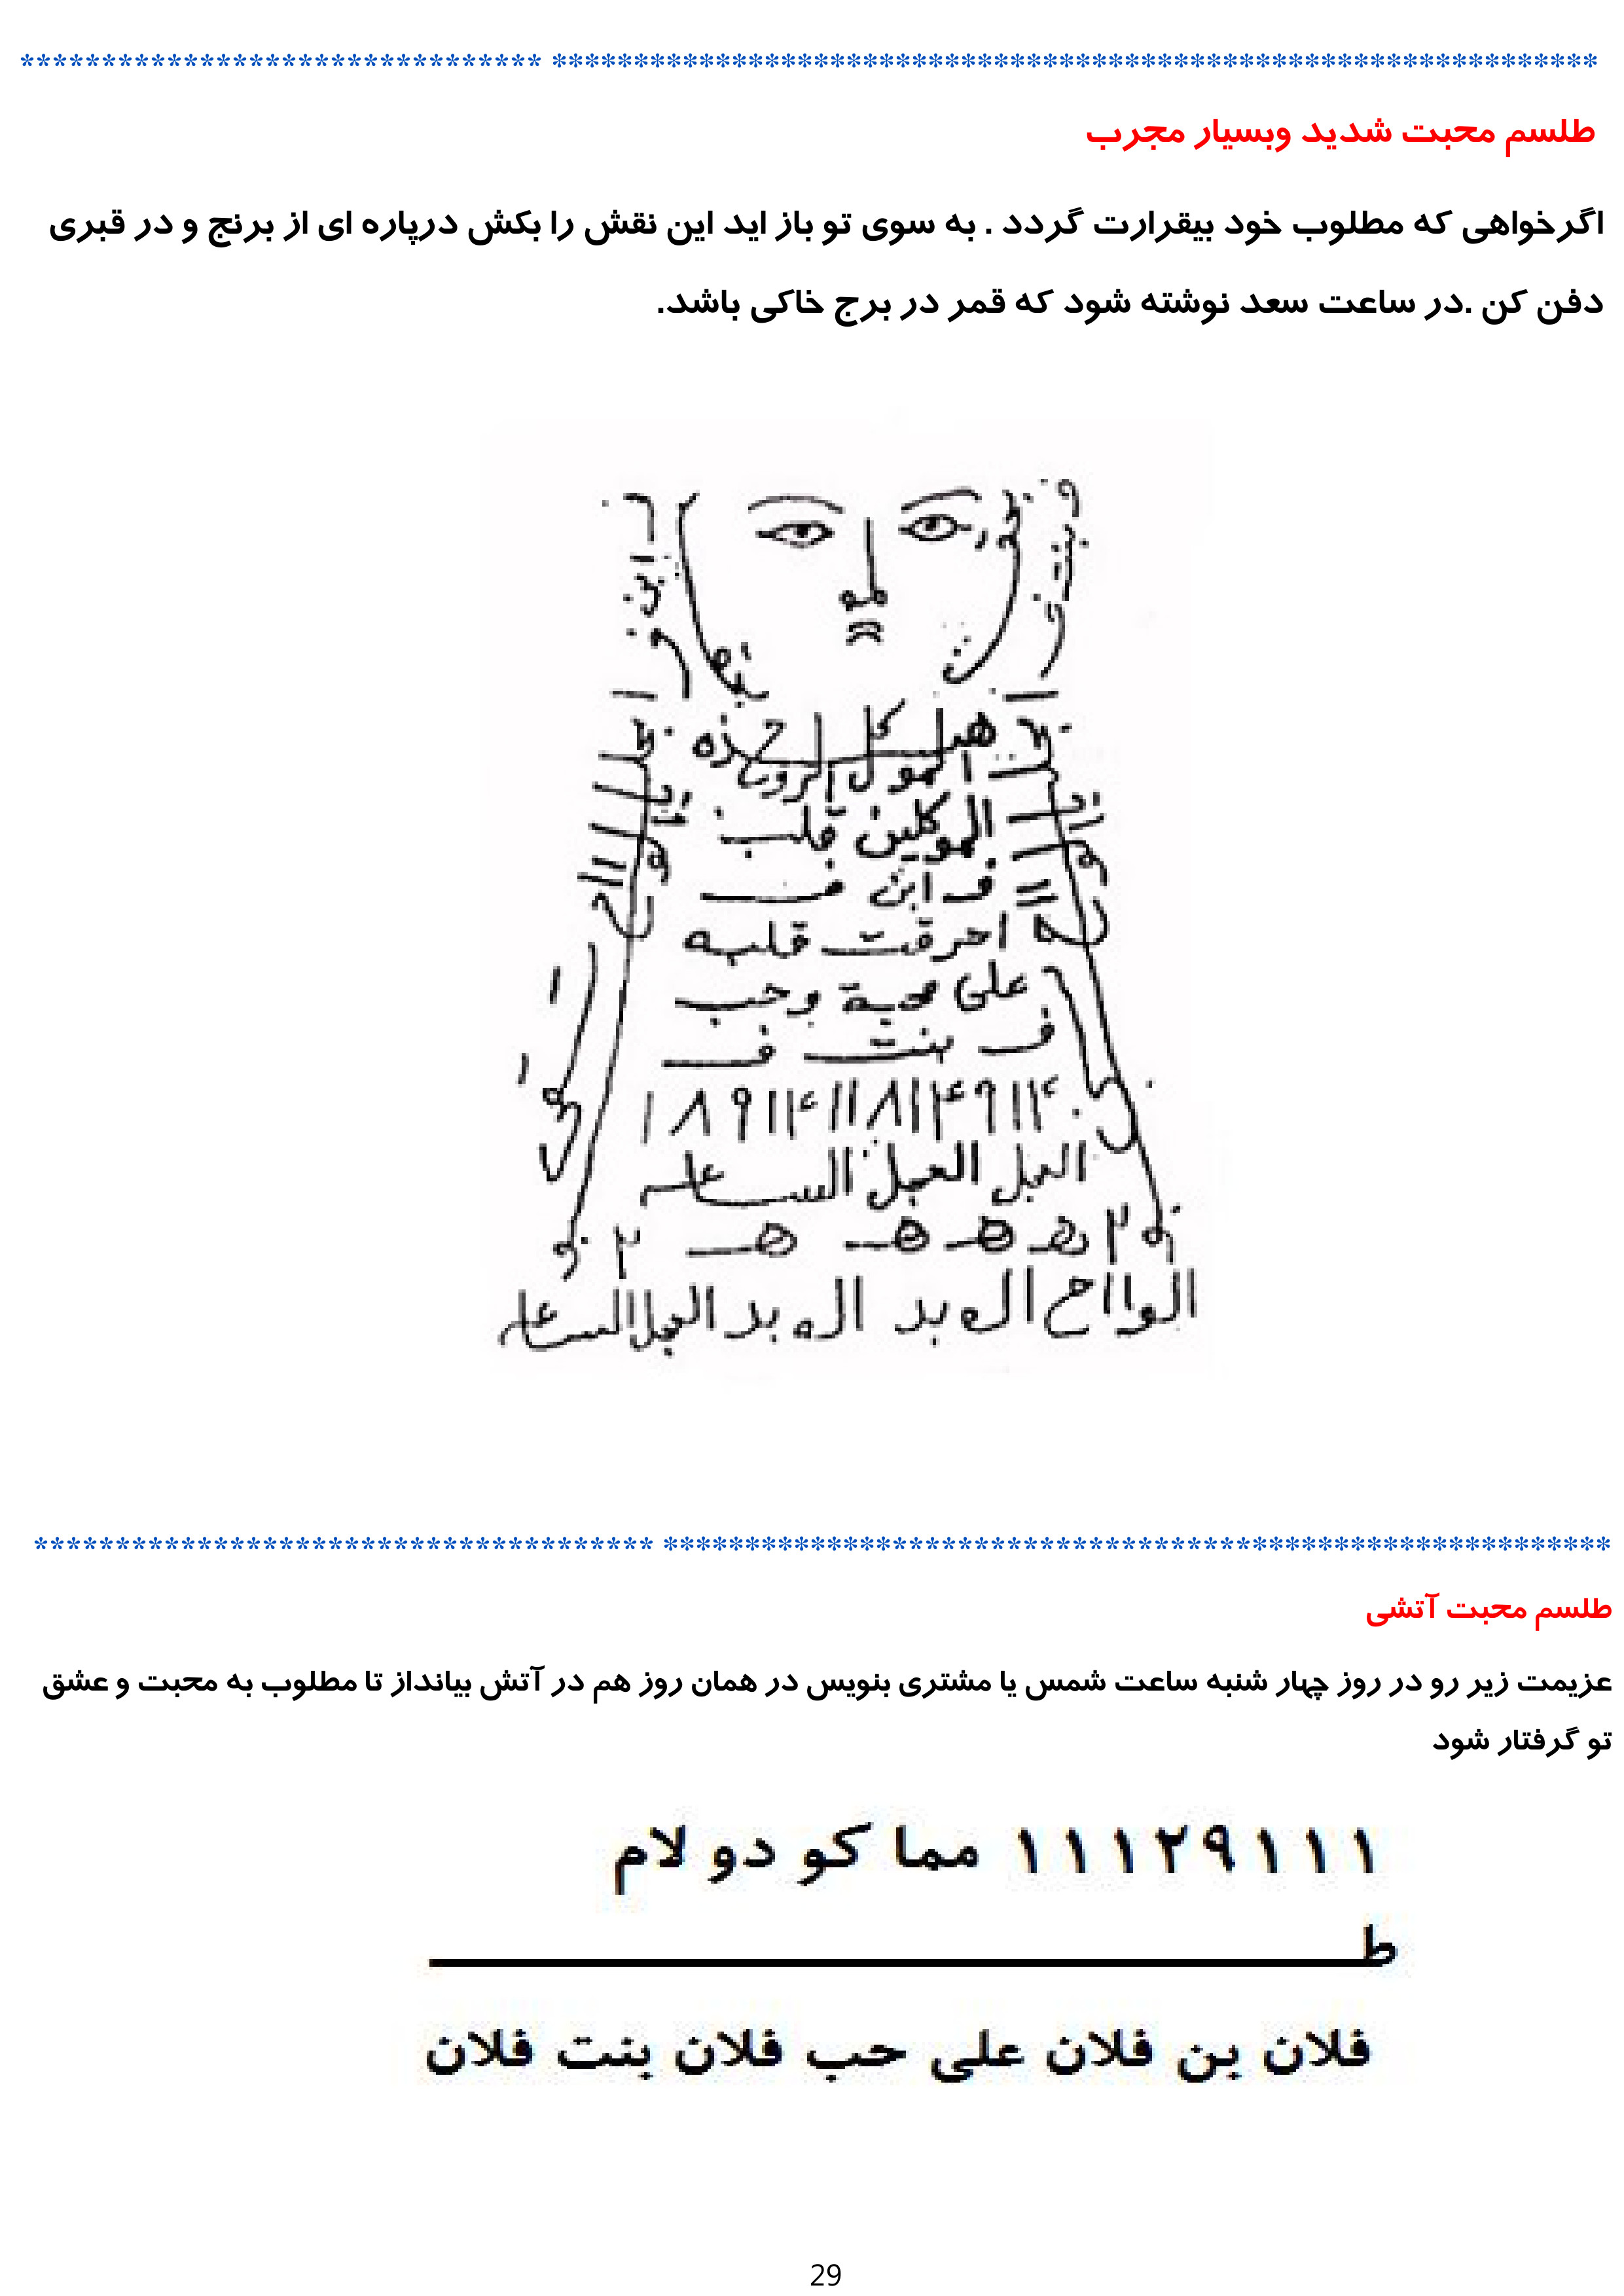 ******************************** ****************************************************************
طلسم محبت شدید وبسیار مجرب
اگرخواهی که مطلوب خود بیقرارت گردد . به سوی تو باز اید این نقش را بکش درپاره ای از برنج و در قبری
دفن کن .در ساعت سعد نوشته شود که قمر در برج خاکی باشد.
الموکلین قلب
ف ابن ف
احرقت قلبه
علی محبة وحب
ف بنت ف
العجل العجل الساعه
************************************** **********************************************************
طلسم محبت آتشی
عزیمت زیر رو در روز چهار شنبه ساعت شمس یا مشتری بنویس در همان روز هم در آتش بیانداز تا مطلوب به محبت و عشق
تو گرفتار شود
۱۱۱۲۹۱۱۱ مما کو دو لام
ط
فلان بن فلان علی حب فلان بنت فلان
29